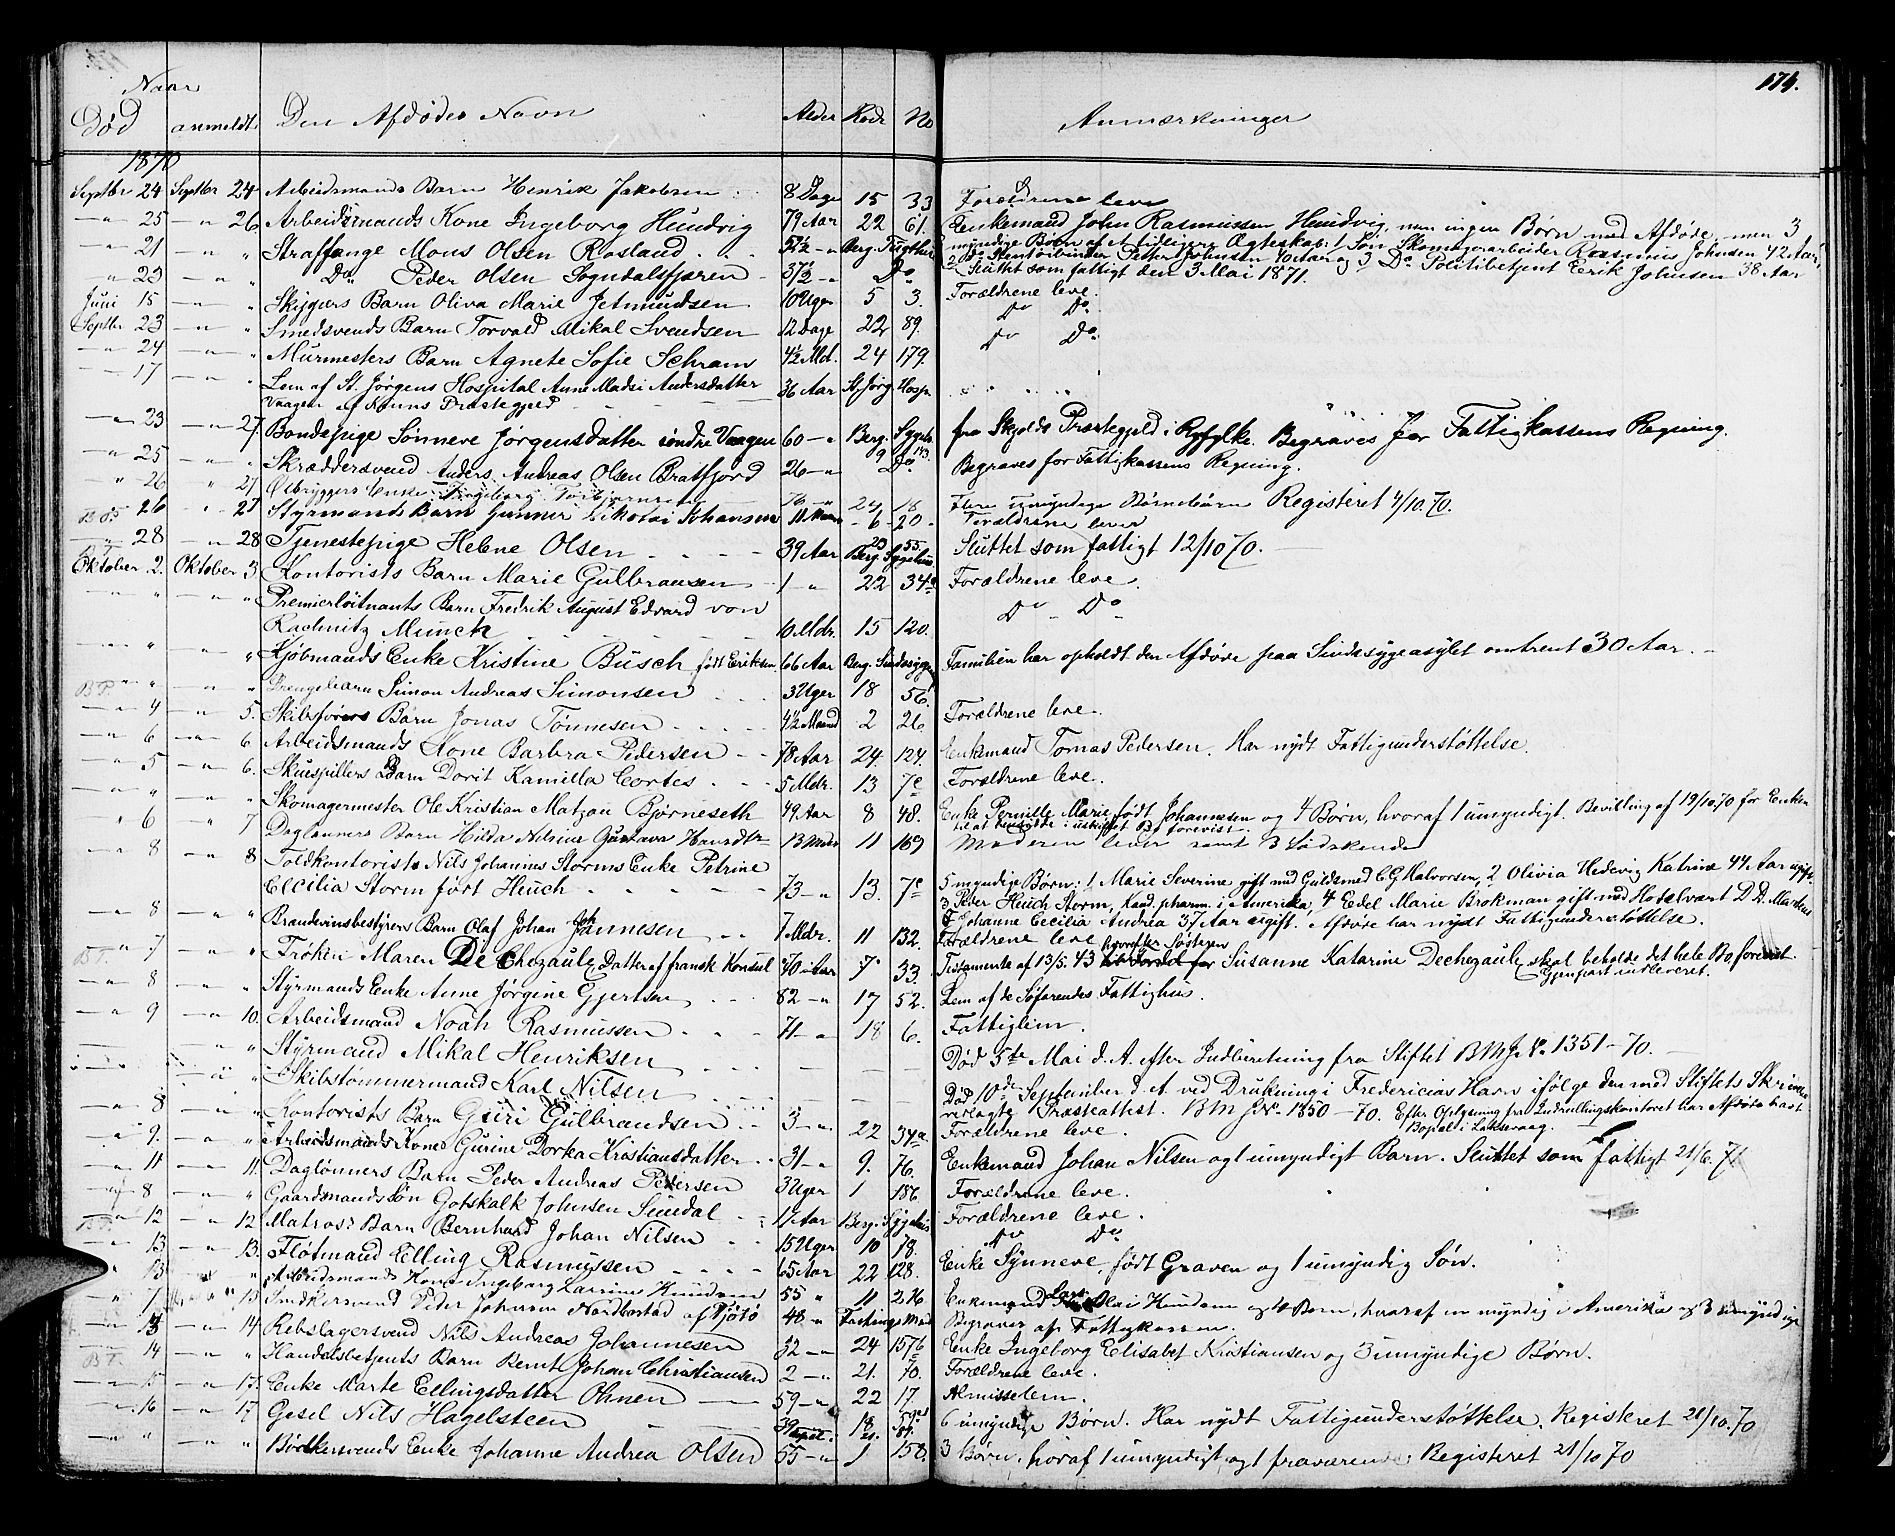 174.
Naar
Død anmeldt Den Afdødes Navn Alder Rode No Anmærkninger
1870
Septbr 24 Septbr 24 Arbeidsmands Barn Henrik Jakobsen 8 Dage 15 33 Forældrene leve
" 25 " 26 Arbeidsmands Kone Ingeborg Hundvig 79 Aar 22 61. Enkemand John Rasmussen Hundvig, men ingen Børn med Afdøde, men 3
myndige Børn af et tidligere Ægteskab: 1 Søn Skomagerarbeider Rasmus Johnsen 42 Aar,
" 21 " " Straffange Mons Olsen Rosland 52½ " Berg. Tugthus 2 Do Kontorbinder Petter Johnsen 40 Aar og 3 Do Politibetjent Eerik Johnsen 38 Aar
" 23 " " Do Peder Olsen Sogndalsfjæren 37½ " Do Sluttet som fattigt den 3 Mai 1871.
Juni 15 " " Skygers Barn Oliva Marie Jetmundsen 10 Uger 5 3. Forældrene leve.
Septbr 23 " " Smedsvends Barn Torvald Mikal Svendsen 12 Dage 22 89. Do Do
" 24 " " Murmesters Barn Agnete Sofie Schram 4½ Md. 24 179. Do Do
" 17 " " Lem af St. Jørgens Hospital Anne Madsi Andersdatter 36 Aar St. Jørg. Hosp.
Vaagen af Præstegjeld
" 23 " 27. Bondepige Sønneve Jørgensdatter søndre Vaagen 60 " Berg. Sygeh. fra Skjolds Præstegjeld i Ryfylke. Begraves for Fattigkassens Regning.
" 25 " " Skræddersvend Anders Andreas Olsen Bratfjord 26 " 9 143. Do Begraves for Fattigkassens Regning.
" 26 " 27 Ølbryggers Enke Ingeborg Torbjørnsen 76 " 24 18 Flere umyndige Børnebørn Registeret 4/10.70.
B.T. 26 " 27 Styrmands Barn Gunner Nikolai Johansen 11 Maan 6 20 Forældrene leve
" 28 " 28 Tjenestepige Helene Olsen 39 Aar 23 55. Berg. Sygehus Sluttet som fattigt 12/10 70.
B.T. Oktober 2. Oktober 3. Kontorists Barn Marie Gulbransen 1 " 22 34a Forældrene leve.
" " " " Premierløitnants Barn Fredrik August Edvard von
Rachnitz Munch 10 Mdr. 15 120. Do Do
" " " " Kjøbmands Enke Kristine Büsch født Eriksen 66 Aar Berg. Sindssyge Familien har opholdt den Afdøde paa Sindssygeasylet omtrent 30 Aar.
B.T. " " " " Drengebarn Simon Andreas Simonsen 3 Uger 18 56.
" 4 " 5. Skibsførers Barn Jonas Tønnesen 4½ Maaned 2 26 Forældrene leve.
" 6 " 6. Arbeidsmands Kone Barbra Pedersen 78 Aar 24. 124. Enkemand Tomas Pedersen. Har nydt Fattigunderstøttelse.
" 5 " 6. Skuespillers Barn Dorit Kamilla Cortes 5 Mdr. 13 7c Forældrene leve.
" " " " Skomagermester Ole Kristian Matzau Bjørneseth 49 Aar 8 48. Enke Pernille Marie født Johannesen og 4 Børn, hvoraf 1 umyndigt. Bevilling af 19/10 70 for Enken
til at hensidde i uskiftet Bo forevist.
" 6 " 7 Daglønners Barn Hilda Adrine Gustava Hansdtr 13 Mdr 11 169 Moderen lever samt 3 Sødskende
" 8 " 8 Toldkontorists Nils Johannes Storms Enke Petrine
Cecilia Storm født Heuch 73 " 13. 7c 5 myndige Børn: 1 Marie Severine gift med Guldsmed C. G. Halvorsen, 2 Olivia Hedevig Katrine 44 Aar ugift
3 Peder Heuch Storm, Kand. pharm. i Amerika, 4 Edel Marie Brokman gift med Hotelvært D. D.
5 Johanne Cecilia Andrea 37 Aar ugift. Afdøde har nydt Fattigunderstøttelse.
" 8 " " Brændevinsbestyrers Barn Olaf Johan Johannesen 7 Mdr. 11 132. Forældrene leve
B.T. " 7. " " Frøken Maren De Chezaule, Datter af fransk Konsul 70 Aar 7 33. Testamente af 13/5. 43 hvorefter Søsteren Susanne Katarine Dechezaule skal beholde det hele Bo, forevist.
Gjenpart indleveret.
" 8 " " Styrmands Enke Anne Jørgine Gjertsen 82 " 17 52. Lem af de Søfarendes Fattighus.
" 9 " 10. Arbeidsmand Noah Rasmussen 71 " 18 6. Fattiglem.
" " Styrmand Mikal Henriksen Død 5te Mai d. A. efter Indberetning fra Stiftet B M J. No 1351 - 70.
" " Skibstømmermand Karl Nilsen Død 10de September d. A. ved Drukning i Fredericias Havn ifølge den med Stiftets Skrivelse
" 8 " " Kontorists Barn Guri Gulbrandsen 3 " 22 34a. verlagte Præsteattest. B M J No 1350 - 70. Efter Oplysning fra Indrulleringskontoret har Afdøde havt
Bopæl i Laksevaag.
Forældrene leve.
" 9. " " Arbeidsmands Kone Gurine Dorka Kristiansdatter 31 " 9. 76. Enkemand Johan Nilsen og 1 umyndigt Barn. Sluttet som fattigt 21/6. 71
" 11 " 11. Daglønners Barn Peder Andreas Pedersen 3 Uger 1 186. Forældrene leve.
" 8 " " Gaardmandssøn Gotskalk Johnsen Sundal 17 Aar Berg. Sygehus Forældrene leve.
B.T. 12 " 12 Matros's Barn Bernhard Johan Nilsen 15 Uger 10 18. Do Do
" 13 " 13. Fløtmand Elling Rasmussen 65 Aar 22 128. Enke Synneve, født Graven og 1 umyndig Søn.
" 13 " " Arbeidsmands Kone Ingeborg Larine Knudsen 55 " 11 216 Enkemand Lars Olai Knudsen og 4 Børn, hvoraf en myndig i Amerika og 3 umyndige
" 7 " 13 Snedkersvend Peder Johnsen Nordbostad af Tjøtø 48 " Fastings Mind Begraves af Fattigkassen.
" 13 " 14. Rebslagersvend Nils Andreas Johannesen 32 " 24 157b Enke Ingeborg Elisabet Kristiansen og 3 umyndige Børn.
B.T. 14 " " Handelsbetjents Barn Bernt Johan Christiansen 2 " 21. 70. Forældrene leve.
" 15 " 17. Enke Marte Ellingsdatter Ohnen 59 " 22 17. Almisselem.
" 16 " 17. Gesel Nils Hagelsteen 39 18 59. 6 umyndige Børn. Har nydt Fattigunderstøttelse. Registeret 21/10.70
" " " " Bødkersvends Enke Johanne Andrea Olsen 55 " 1 158. 3 Børn, hvoraf 1 umyndigt og 1 fraværende. Registeret 21/10 70